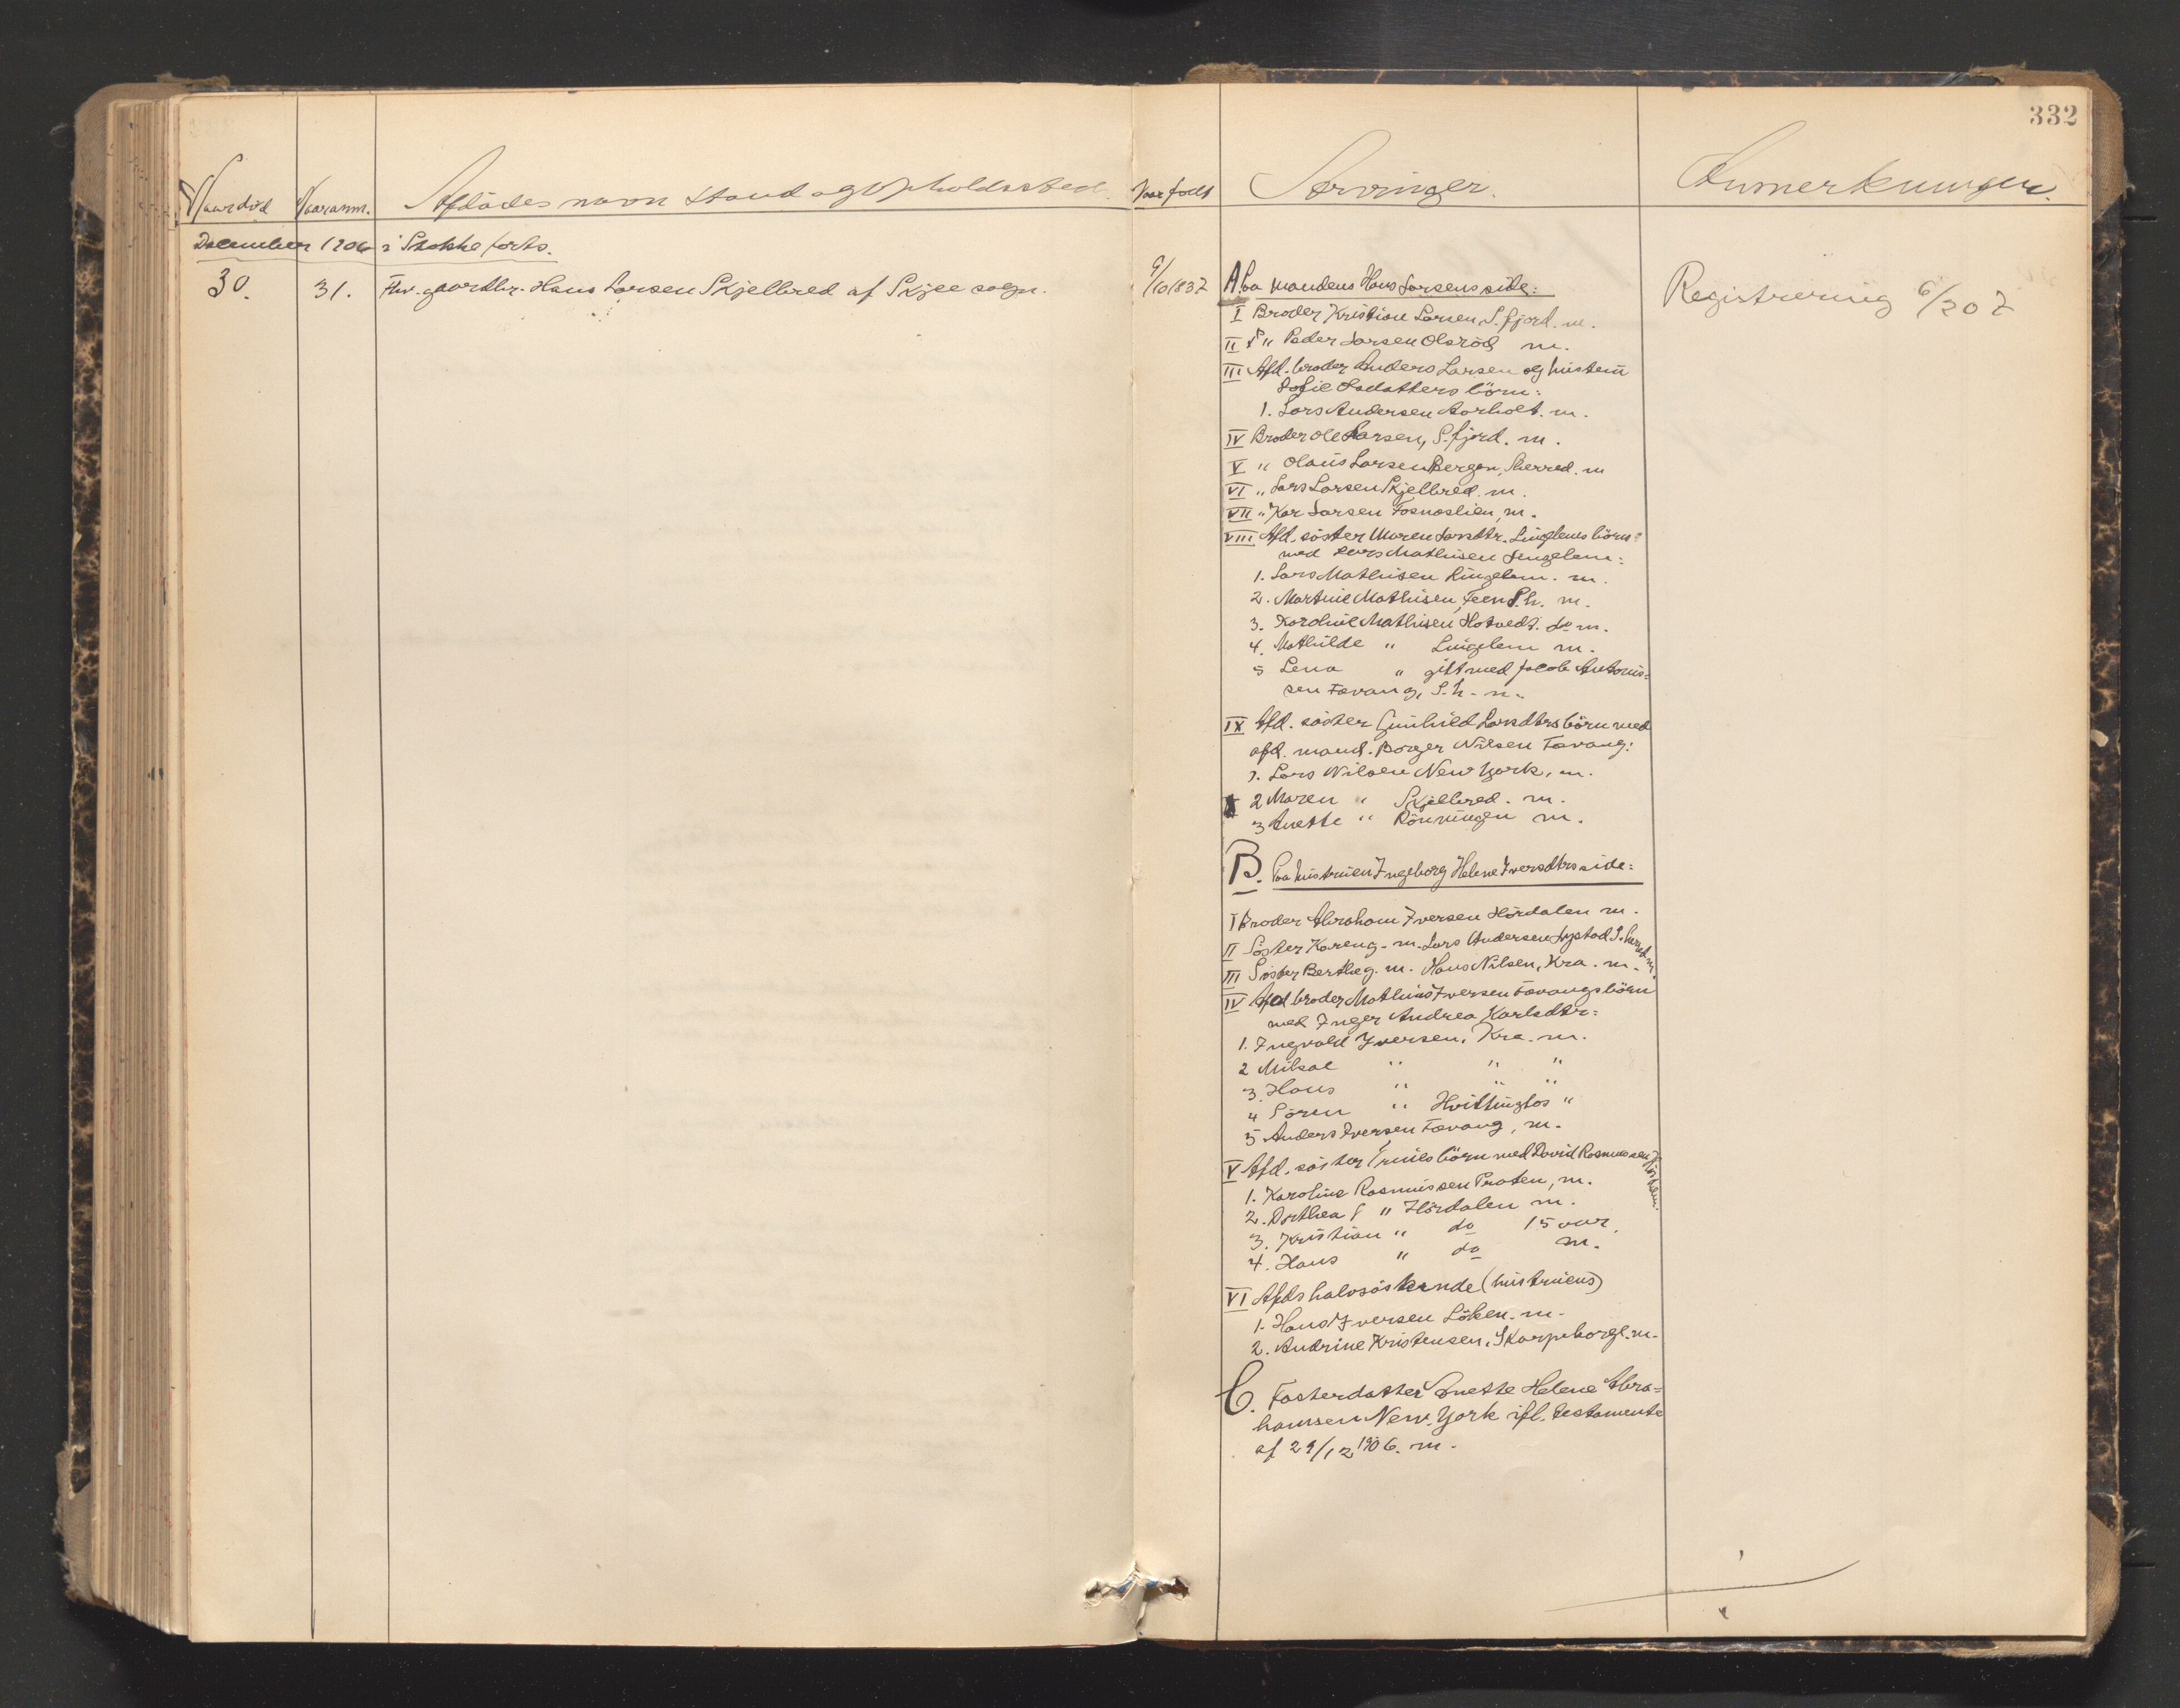 332
Naar död Naar anm. Afdödes navn stand og Opholdssted. Naar født Arvinger. Anmerkninger.
December 1906 i Stokke forts.
30. 31. Fhv. gaardbr. Hans Larsen Skjelbred af Skjee sogn. 9/10 1837
A. Paa mandens Hans Larsens side:
I Broder Kristian Larsen S.fjord. m.
II " Peder Larsen Olsröd m.
III Afd. broder Anders Larsen og hustru
Sofie Olsdatters börn:
1. Lars Andersen Aarholt. m.
IV Broder Ole Larsen, S.fjord. m.
V " Olaus Larsen Bergan, Sherred. m
VI " Lars Larsen Skjelbred. m.
VII " Kar Larsen Fosnaslien, m.
VIII Afd. söster Maren Larsdtr. Lingelems börn
med Lars Mathisen Lingelem:
1. Lars Mathisen Lingelem. m.
2. Martine Mathisen, Feen S.h. m.
3. Karoline Mathisen Hotvedt. do m.
4. Mathilde " Lingelem m.
5 Lena " gift med Jacob Antonis=
sen Favang, S.h. m.
IX Afd. söster Gunhild Larsdtrs börn med
afd. mand. Borger Nilsen Favang:
1. Lars Nilsen New York, m.
2 Maren " Skjelbred. m.
3 Anette " Rönningen m.
B. Paa hustruen Ingeborg Helene Iversdtrs side:
I Broder Abraham Iversen Hördalen m.
II Söster Karen g. m. Lars Andersen Lystad S.herred m.
III Söster Berthe g. m. Hans Nilsen, Kra. m.
IV Afd broder Mathias Iversen Favangs börn
med Inger Andrea Karlsdtr:
1. Ingvald Iversen, Kra. m.
2 Mikael " " "
3. Hans " " "
4 Sören " Hvittingfos "
5 Anders Iversen Favang, m.
V Afd. söster börn med David Rasmussen
1. Karoline Rasmussen Proten, m.
2. Dorthea " Hördalen m.
3. Kristian " do 15 aar.
4. Hans " do m.
VI Afds halvsöskende (hustruens)
1. Hans Iversen Löken. m.
2. Andrine Kristensen, Skorpeborge. m.
C. Fosterdatter Anette Helene Abra=
hamsen New York ifl. testamente
af 29/12 1906. m.
Registrering 6/2 07